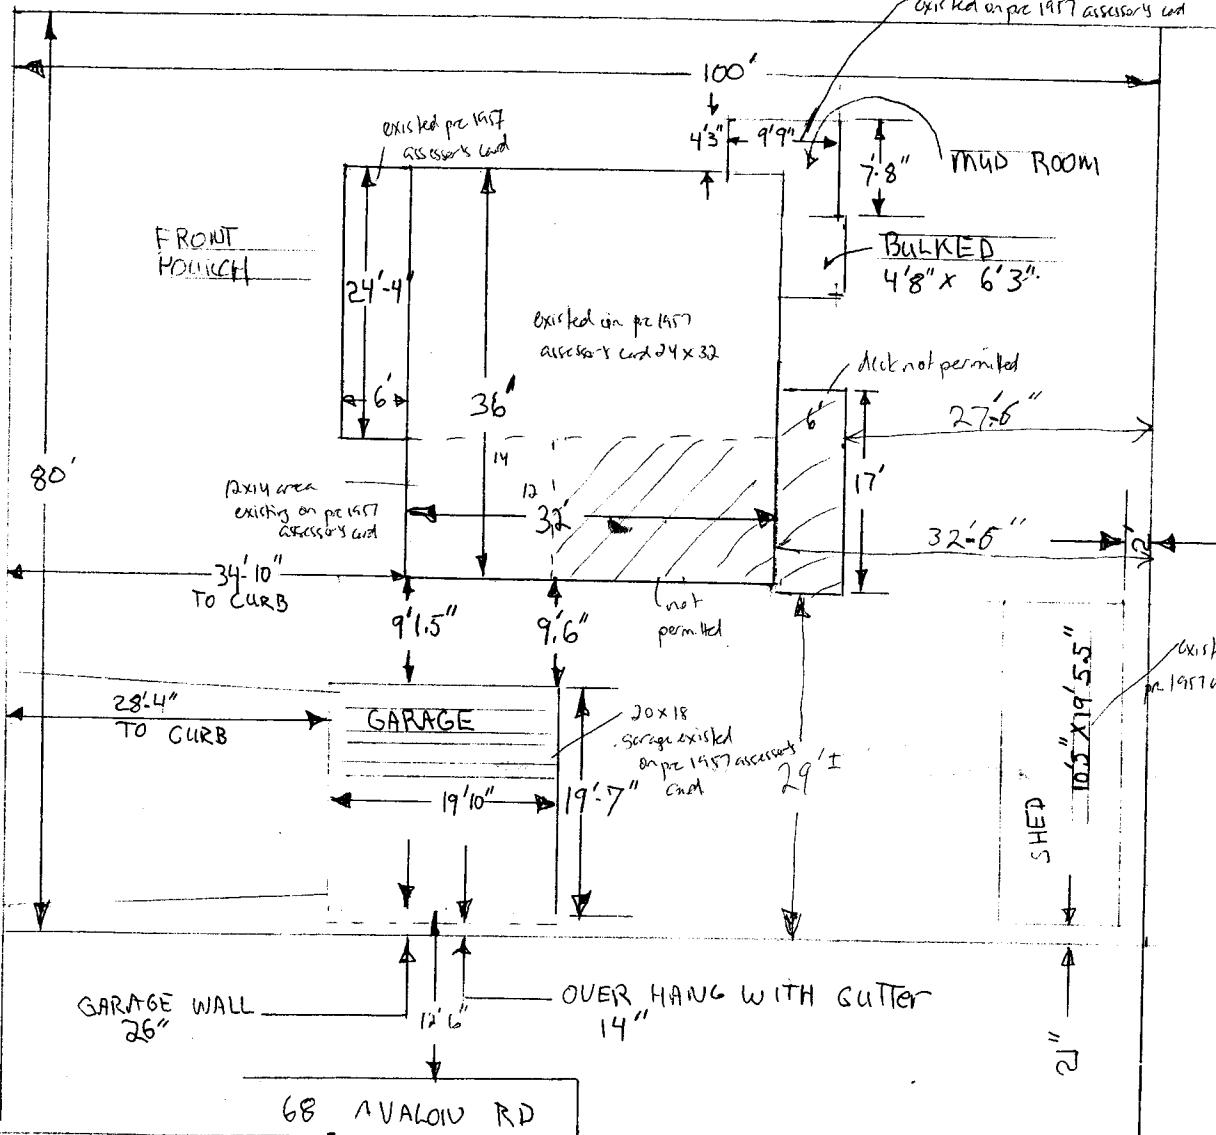 existed on pre 1957 assessor's card
100'
existed pre 1957
assessor's card
4'3"
9'9"
7'8"
MUD ROOM
FRONT
BULKED
4'8" x 6'3"
24'-4"
existed on pre 1957
assessor's card 24x32
deck not permitted
6'
36"
6'
27'-6"
80'
14
12x14 area
existing on pre 1957
assessor's card
12
32'
17'
32'-6"
2'
34'-10"
TO CURB
9'1.5"
9'.6"
not
permitted
28'-4"
TO CURB
GARAGE
20x18
garage existed
on pre 1957 assessors
card
19'10"
19'-7"
29'±
SHED
10'.5" X 19'5.5"
exist
pre 1957 a
GARAGE WALL
26"
12'6"
OVER HANG WITH GUTTER
14"
21"
68 AVALON RD